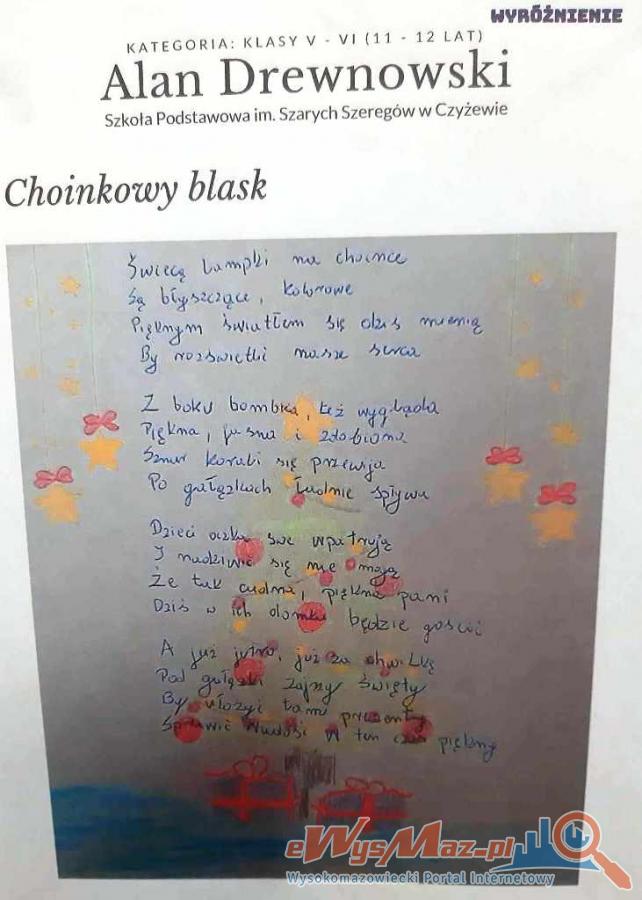 WYRÓŻNIENIE
KATEGORIA: KLASY V - VI (11 - 12 LAT)
Alan Drewnowski
Szkoła Podstawowa im. Szarych Szeregów w Czyżewie
Choinkowy blask
Świecą lampki na choince
Są błyszczące, kolorowe
Pięknym światłem się dziś mienią
By rozświetlić nasze serca
Z boku bombka, też wygląda
Piękna, jasna i zdobiona
Sznur korali się przewija
Po gałązkach ładnie spływa
Dzieci oczka swe wpatrują
I nadziwić się nie mogą
Że tak cudna, piękna pani
Dziś w ich domku będzie gościć
A już jutro, już za chwilkę
Pod gałązki zajrzy Święty
By włożyć tam prezenty
Sprawić radość w ten czas piękny
eWysMaz.pl
Wysokomazowiecki Portal Internetowy